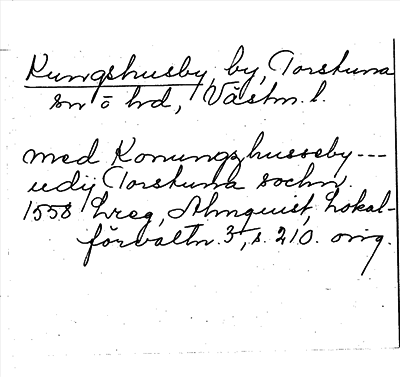 Kungshusby, by, Torstuna
sn o hd, Västm. l.
med Konungzhusseby ---
udij Torstuna sochn
1558 Lreg, Almquist, Lokal-
förvaltn. 3, s. 210. orig.